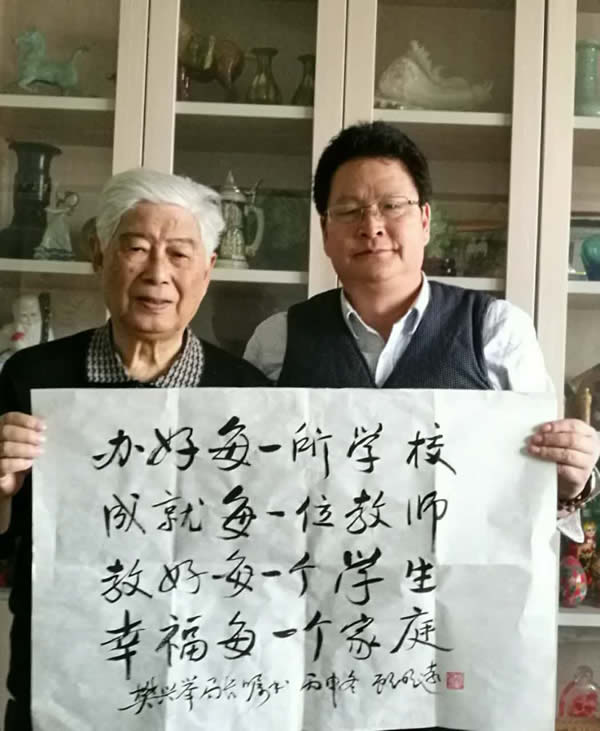 办好每一所学校
成就每一位教师
教好每一个学生
幸福每一个家庭
樊兴举局长嘱书 丙申冬 顾明远